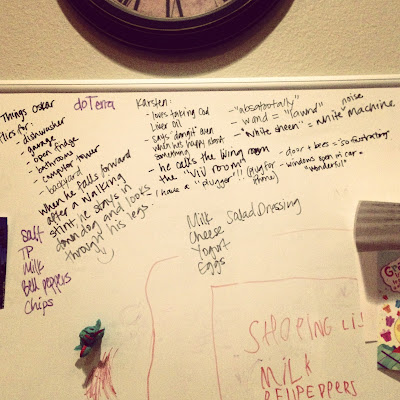 Things oskar
flies for:
- dishwasher
- garage
- open fridge
- bathrooms
- computer tower
- backyard
when he falls forward
after a walking
stint he stays in
down dog and looks
through his legs
doTerra
Karsten:
- loves taking Cod
Liver oil
- Says "dangit" even
when he's happy about
something
- he calls the living room
the "viv room"
- I have a "plugger"!! (plug for
phone)
- "absofootally"
- wand = "lawnd"
- "White Sheen" = White noise machine.
- door + bees = "so fustrating"
- windows open in car =
"wonderful"
Salt
TP
Milk
Bell peppers
Chips
Milk Salad Dressing
Cheese
Yogurt
Eggs
SHOPING Li
MiLK
BELLPEPPERS